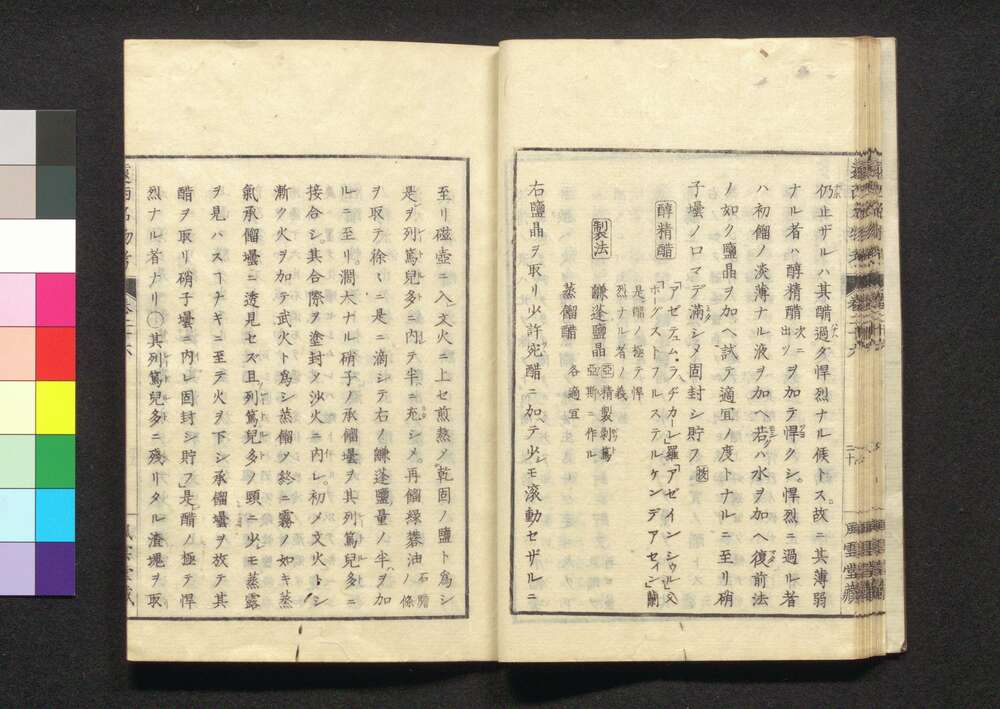 仍止ザルハ其醋過タ悍烈ナル候トス。故ニ其薄弱
ナル者ハ醇精醋次ニ出ツヲ加ヲ悍クシ。悍烈ニ過ル者
ハ初餾ノ淡薄ナル液ヲ加ヘ若クハ水ヲ加ヘ復前法
ノ如ク鹽晶ヲ加ヘ試テ適宜ノ度トナルニ至リ硝
子壜ノ口マデ滿シメ固封シ貯フ
醇精醋
「アゼテュム・ラヂカーレ」羅「アゼインシュル」又
「ホーグストフルステルケンデアセイン」蘭
是醋ノ極テ悍
烈ナル者ノ義
製法
䥥蓬鹽晶 亞精製剥篤亞斯ニ作ル
蒸餾醋 各適宜
右鹽晶ヲ取リ少許宛醋ニ加ヘテ少モ滚動セザルニ
至リ磁壺ニ入レ文火ニ上セ煎熬ノ乾固ノ鹽ト爲シ
是ヲ列篤兒多ニ内テ半ニ充シメ。再餾綠礬油ノ條
ヲ取テ徐々ニ是ニ滴シテ右ノ䥥蓬鹽量ノ半ヲ加
ルニ至リ濶大ナル硝子ノ承餾壜ヲ其列篤兒多ニ
接合シ。其合際ヲ塗封ソ沙火ニ内レ。初メ文火トシ
漸ク火ヲ加テ武火ト爲シ蒸餾ソ終ニ霧ノ如キ蒸
氣承餾壜ニ透見セズ且列篤兒多ノ頸ニ少モ蒸露
ヲ見ハスヿナキニ至テ火ヲ下シ承餾壜ヲ放テ其
醋ヲ取リ硝子壜ニ内レ固封シ貯フ」是醋ノ極テ悍
烈ナル者ナリ〇其列篤兒多ニ殘リタル渣塊ヲ取